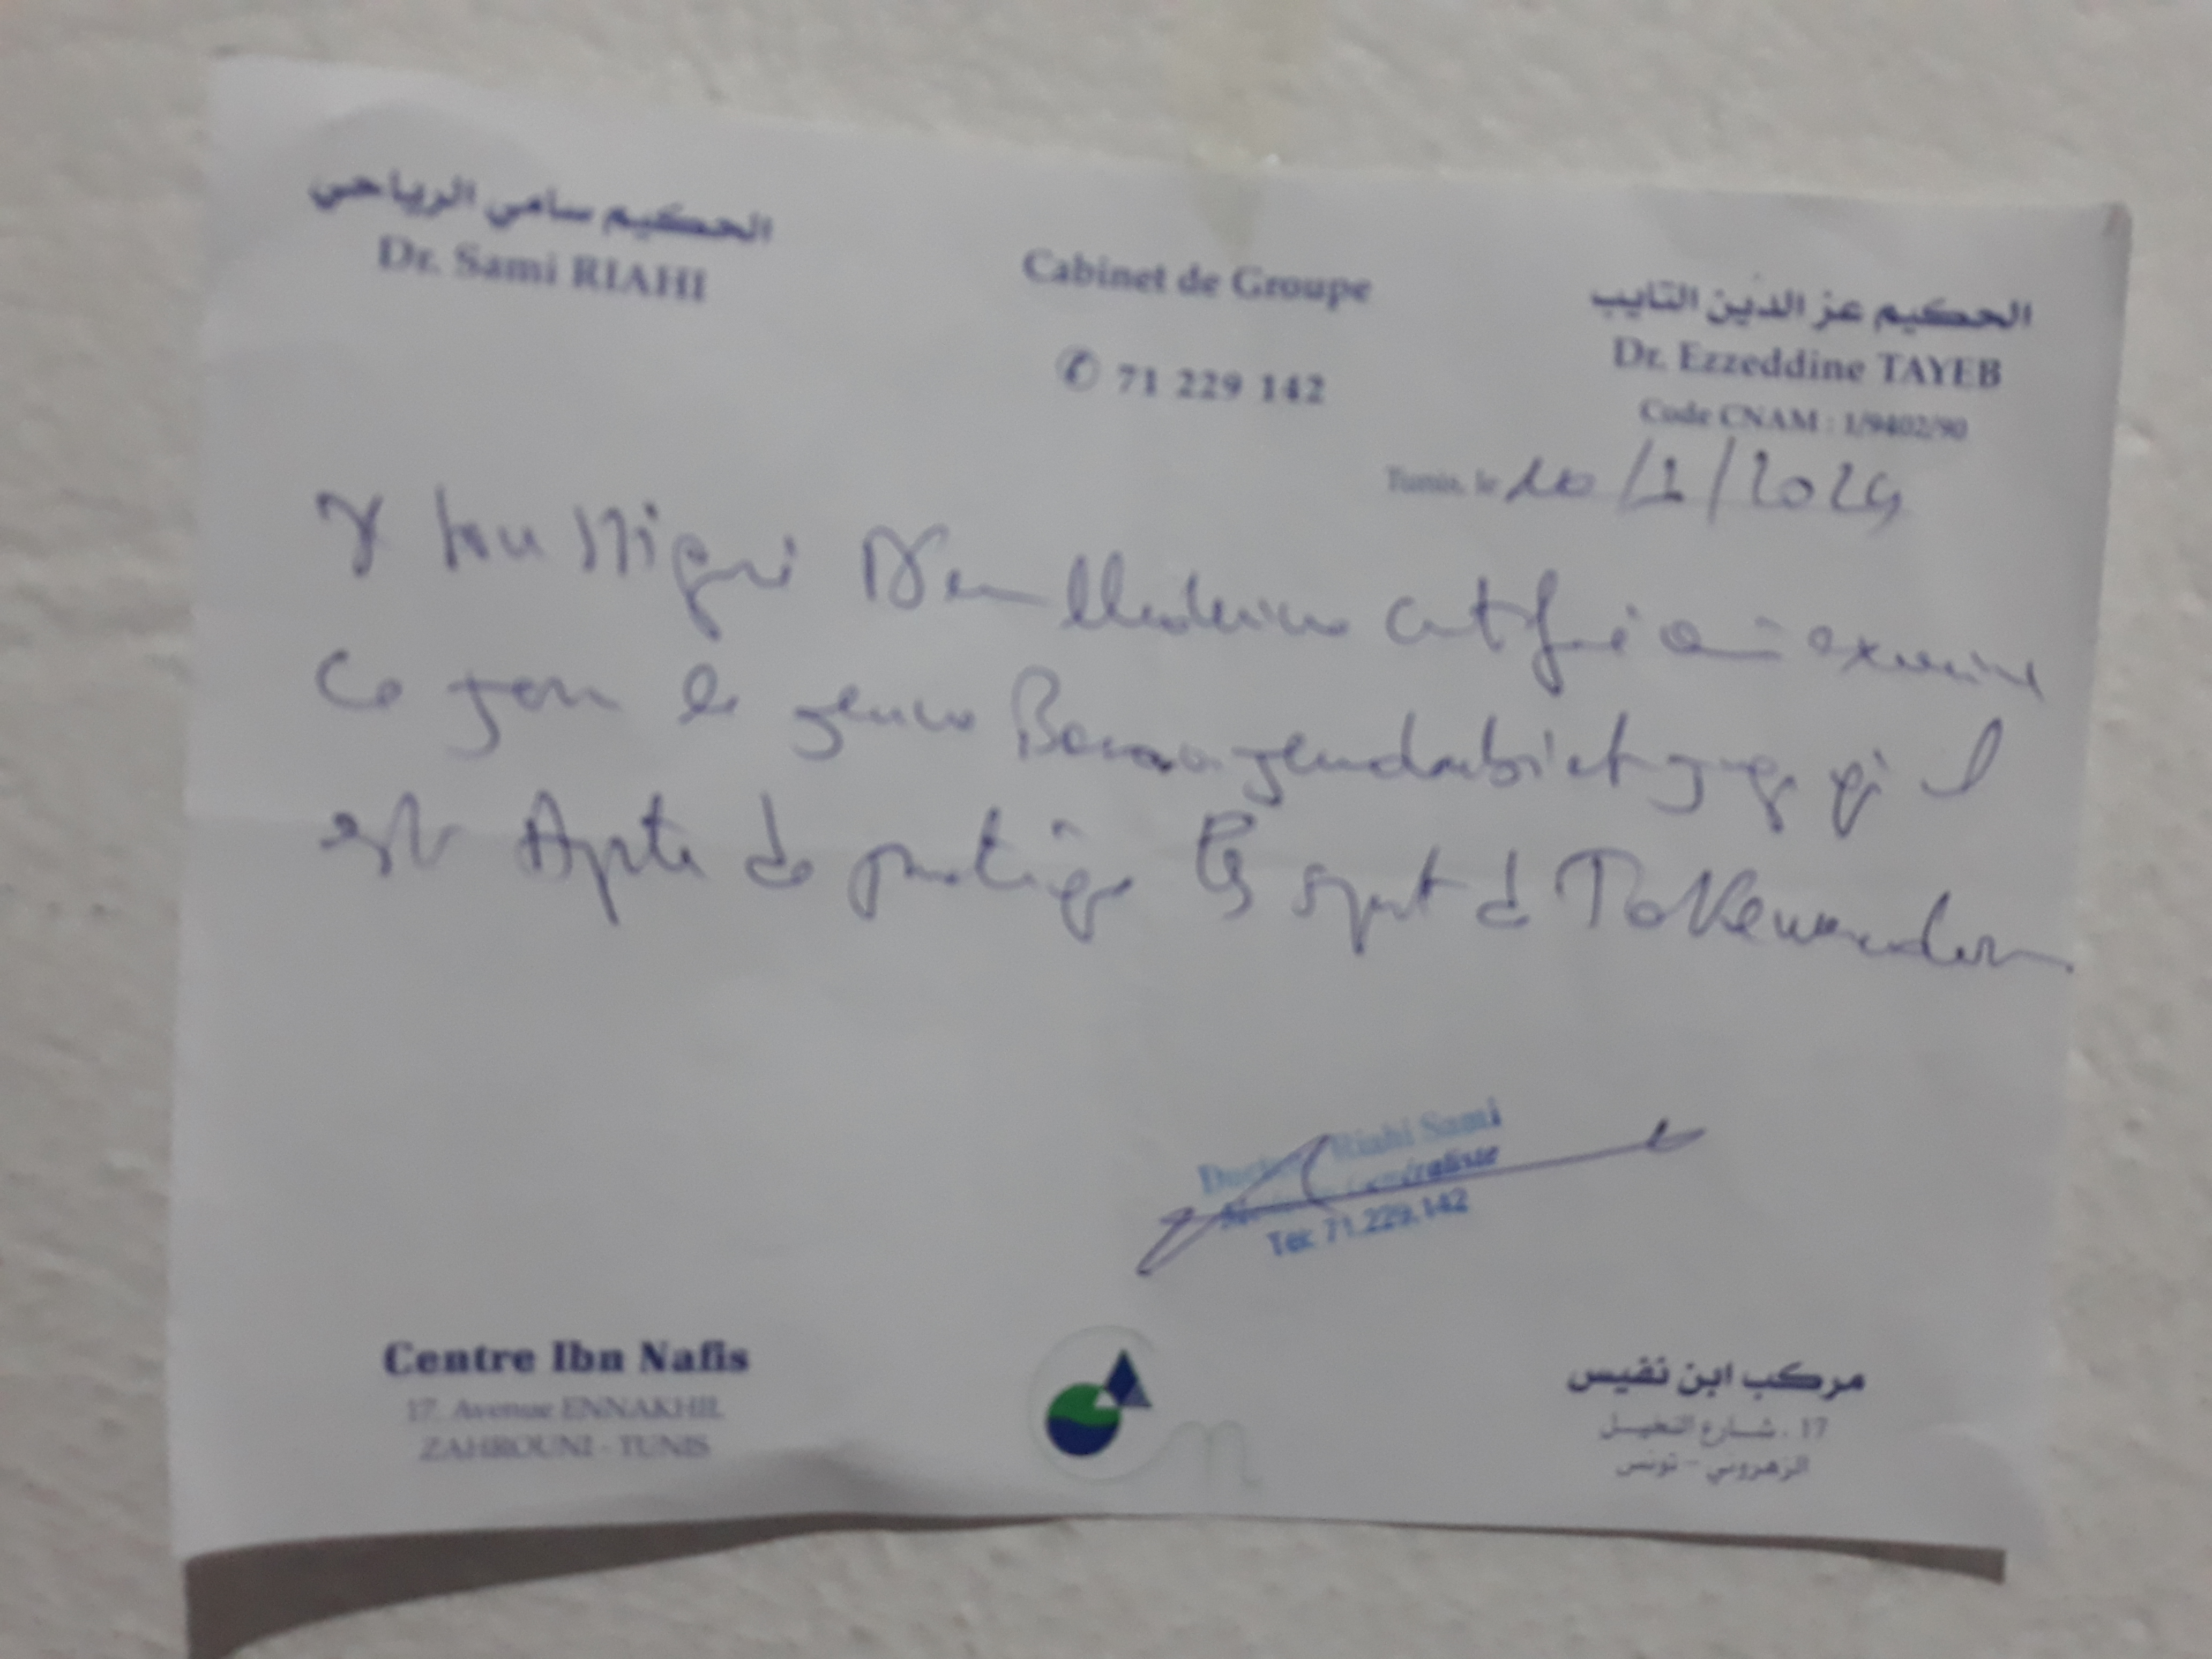 الحكيم سامي الرياحي
Dr. Sami RIAHI
Cabinet de Groupe
✆ 71 229 142
الحكيم عز الدين التايب
Dr. Ezzeddine TAYEB
Code CNAM : 1/9402/90
Tunis, le 10/1/2024
Médecine certifie avoir examiné
ce jour le jeune et juge qu'il
est Apte de pratiquer le sport de
Docteur Riahi Sami
Généraliste
Tel: 71.229.142
Centre Ibn Nafis
17, Avenue ENNAKHIL
ZAHROUNI - TUNIS
مركب ابن نفيس
17 ، شارع النخيل
الزهروني - تونس